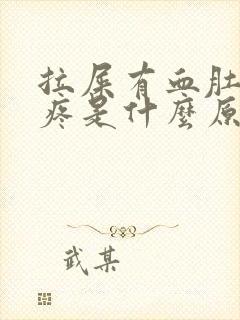 拉屎有血肚
疼是什麼原
武某